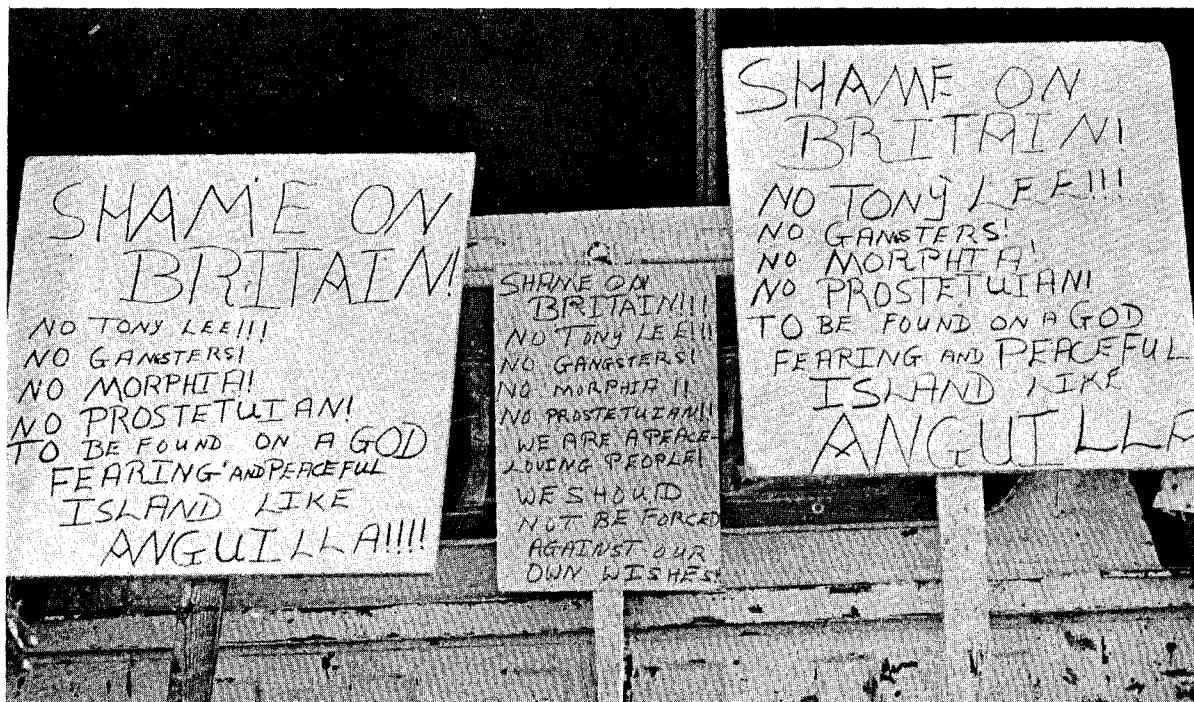 SHAME ON
BRITAIN!
NO TONY LEE!!!
NO GANGSTERS!
NO MORPHIA!
NO PROSTETUIAN!
TO BE FOUND ON A GOD
FEARING AND PEACEFUL
ISLAND LIKE
ANGUILLA!!!!
SHAME ON
BRITAIN!!!
NO TONY LEE!!!
NO GANGSTERS!
NO MORPHIA !!
NO PROSTETUIAN!!
WE ARE A PEACE-
LOVING PEOPLE!
WE SHOULD
NOT BE FORCED
AGAINST OUR
OWN WISHES!
SHAME ON
BRITAIN!
NO TONY LEE!!!
NO GANGSTERS!
NO MORPHIA!
NO PROSTETUIAN!
TO BE FOUND ON A GOD
FEARING AND PEACEFUL
ISLAND LIKE
ANGUILLA